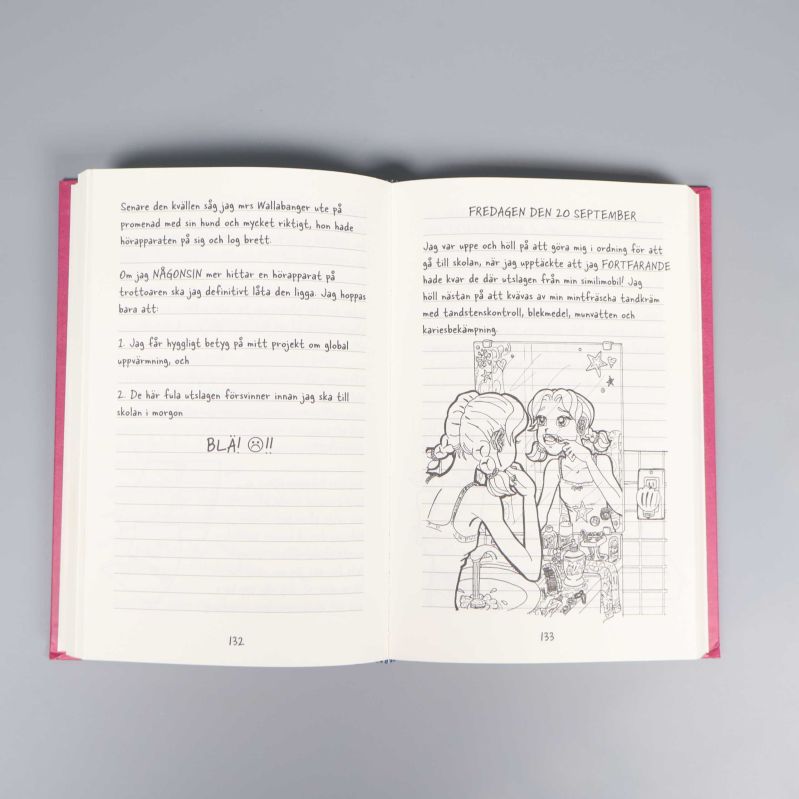 Senare den kvällen såg jag mrs Wallabanger ute på
promenad med sin hund och mycket riktigt, hon hade
hörapparaten på sig och log brett.
Om jag NÅGONSIN mer hittar en hörapparat på
trottoaren ska jag definitivt låta den ligga. Jag hoppas
bara att:
1. Jag får hyggligt betyg på mitt projekt om global
uppvärmning, och
2. De här fula utslagen försvinner innan jag ska till
skolan i morgon
BLÄ! ☹!!
132
FREDAGEN DEN 20 SEPTEMBER
Jag var uppe och höll på att göra mig i ordning för att
gå till skolan, när jag upptäckte att jag FORTFARANDE
hade kvar de där utslagen från min similimobil! Jag
höll nästan på att kvävas av min mintfräscha tandkräm
med tandstenskontroll, blekmedel, munvatten och
kariesbekämpning.
133